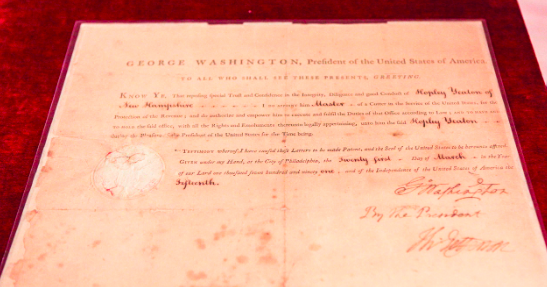 GEORGE WASHINGTON, President of the United States of America
TO ALL WHO SHALL SEE THESE PRESENTS, GREETING
KNOW YE, That reposing special Trust and Confidence in the Integrity, Diligence and good Conduct of Hopley Yeaton of
New Hampshire I do appoint him Master of a Cutter in the Service of the United States, for the
Protection of the Revenue; and do authorize and empower him to execute and fulfil the Duties of that Office according to Law; and to
hold the said office, with all the Rights and Emoluments thereunto legally appertaining, unto him the said Hopley Yeaton
during the Pleasure of the President of the United States for the Time being.
IN TESTIMONY whereof I have caused these Letters to be made Patent, and the Seal of the United States to be hereunto affixed.
GIVEN under my Hand, at the City of Philadelphia, the Twenty first Day of March in the Year
of our Lord one thousand seven hundred and ninety one, and of the Independence of the United States of America the
Fifteenth.
G. Washington
By The President
Th. Jefferson